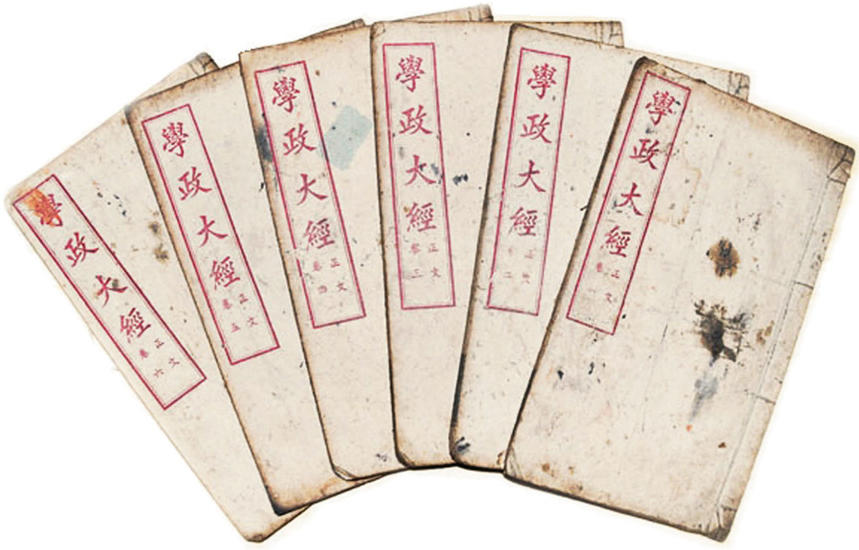 學政大經
正文
卷一
學政大經
正文
卷二
學政大經
正文
卷三
學政大經
正文
卷四
學政大經
正文
卷五
學政大經
正文
卷六